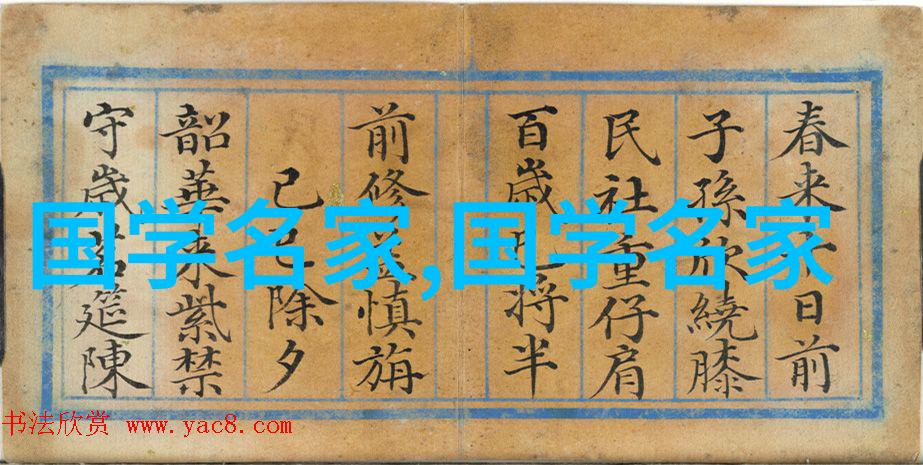 春来日前
子孫欣繞膝
民社重仔肩
百歲将半
前修慎旃
己巳除夕
韶華来紫禁
守歲筵陳
国学名家,国学名家
书法欣赏 www.yac8.com